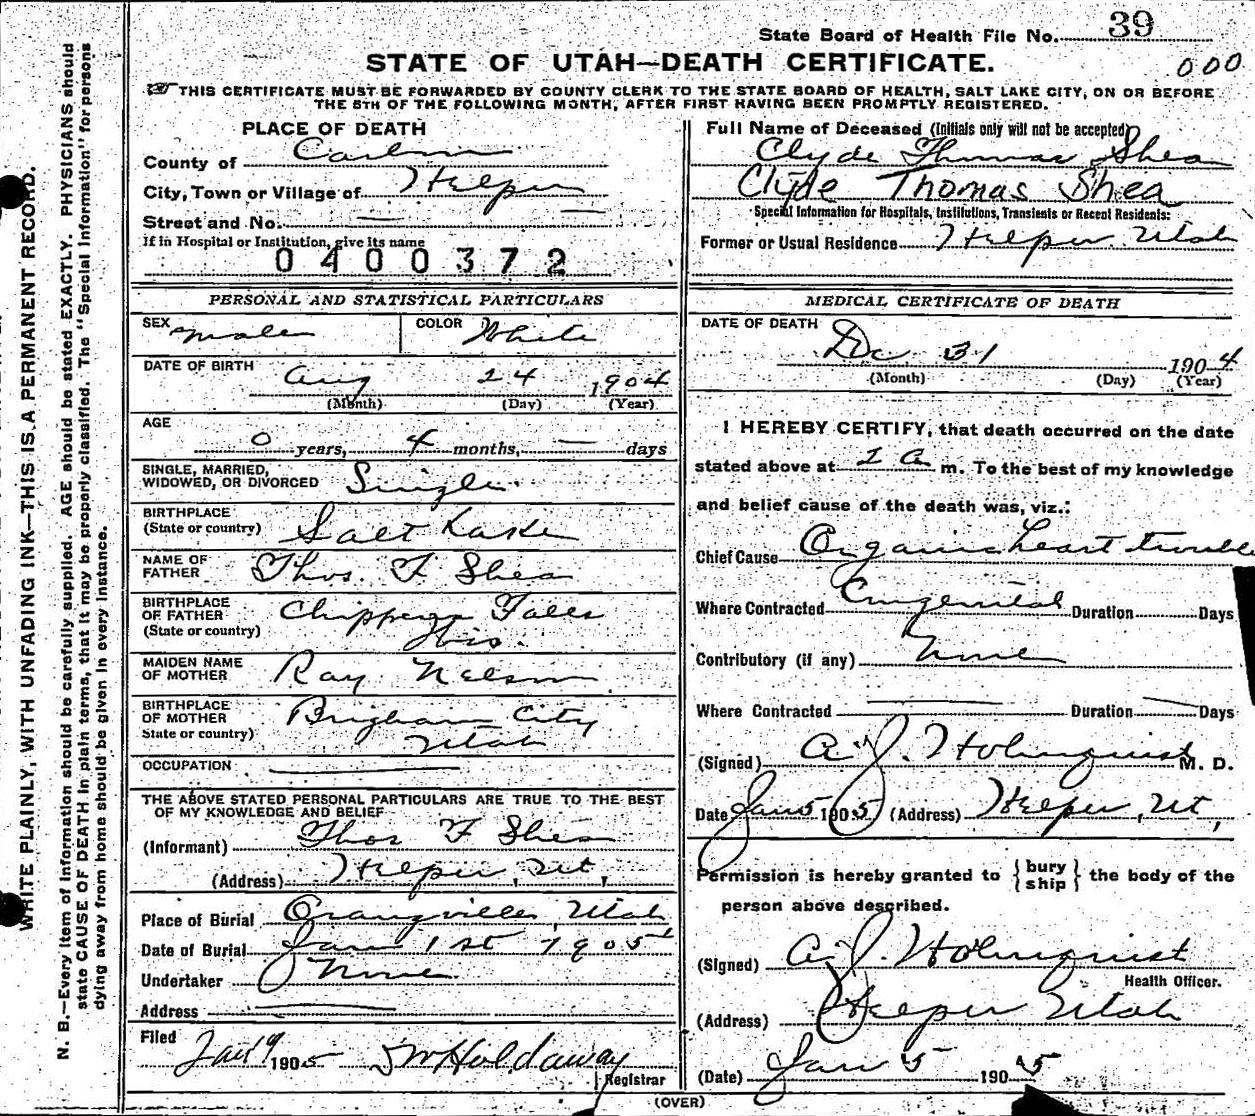 State Board of Health File No. 39
000
STATE OF UTAH—DEATH CERTIFICATE.
THIS CERTIFICATE MUST BE FORWARDED BY COUNTY CLERK TO THE STATE BOARD OF HEALTH, SALT LAKE CITY, ON OR BEFORE
THE 5TH OF THE FOLLOWING MONTH, AFTER FIRST HAVING BEEN PROMPTLY REGISTERED.
WRITE PLAINLY, WITH UNFADING INK—THIS IS A PERMANENT RECORD.
N. B.—Every item of information should be carefully supplied. AGE should be stated EXACTLY. PHYSICIANS should
state CAUSE OF DEATH in plain terms, that it may be properly classified. The "Special Information" for persons
dying away from home should be given in every instance.
PLACE OF DEATH
County of Carbon
City, Town or Village of Helper
Street and No. —
If in Hospital or Institution, give its name
0400372
PERSONAL AND STATISTICAL PARTICULARS
SEX male
COLOR White
DATE OF BIRTH Aug 24 1904
(Month) (Day) (Year)
AGE
0 years, 4 months, — days
SINGLE, MARRIED,
WIDOWED, OR DIVORCED Single
BIRTHPLACE
(State or country) Salt Lake
NAME OF
FATHER Thos. F Shea
BIRTHPLACE
OF FATHER Chippewa Falls
(State or country) Wis.
MAIDEN NAME
OF MOTHER Ray Nelson
BIRTHPLACE
OF MOTHER Brigham City
State or country) Utah
OCCUPATION
THE ABOVE STATED PERSONAL PARTICULARS ARE TRUE TO THE BEST
OF MY KNOWLEDGE AND BELIEF
(Informant) Thos F Shea
(Address) Helper, Ut,
Place of Burial Orangville, Utah
Date of Burial Jan 1st 1905
Undertaker None
Address
Filed Jan 9 1905 Holdaway
Registrar
Full Name of Deceased (Initials only will not be accepted)
Clyde Thomas Shea
Clyde Thomas Shea
Special Information for Hospitals, Institutions, Transients or Recent Residents:
Former or Usual Residence Helper Utah
MEDICAL CERTIFICATE OF DEATH
DATE OF DEATH Dec 31 1904
(Month) (Day) (Year)
I HEREBY CERTIFY, that death occurred on the date
stated above at a m. To the best of my knowledge
and belief cause of the death was, viz.:
Chief Cause Organic heart trouble
Where Contracted Congenital Duration Days
Contributory (if any) None
Where Contracted Duration Days
(Signed) A. J. Holmquist M. D.
Date Jan 5 1905 (Address) Helper, Ut,
Permission is hereby granted to { bury ship } the body of the
person above described.
(Signed) A. J. Holmquist
Health Officer.
(Address) Helper Utah
(Date) Jan 5 1905
(OVER)